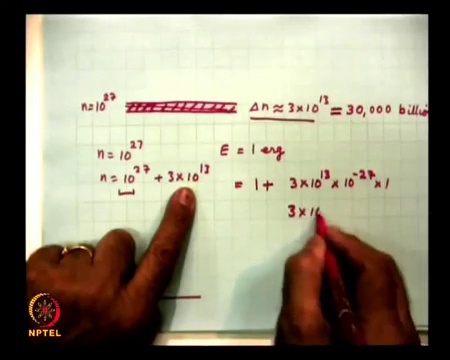 n=10²⁷ Δn ≈ 3×10¹³ = 30,000 billio
n = 10²⁷ E = 1 erg
n = 10²⁷ + 3×10¹³ = 1 + 3×10¹³ × 10⁻²⁷ × 1
3×1
NPTEL